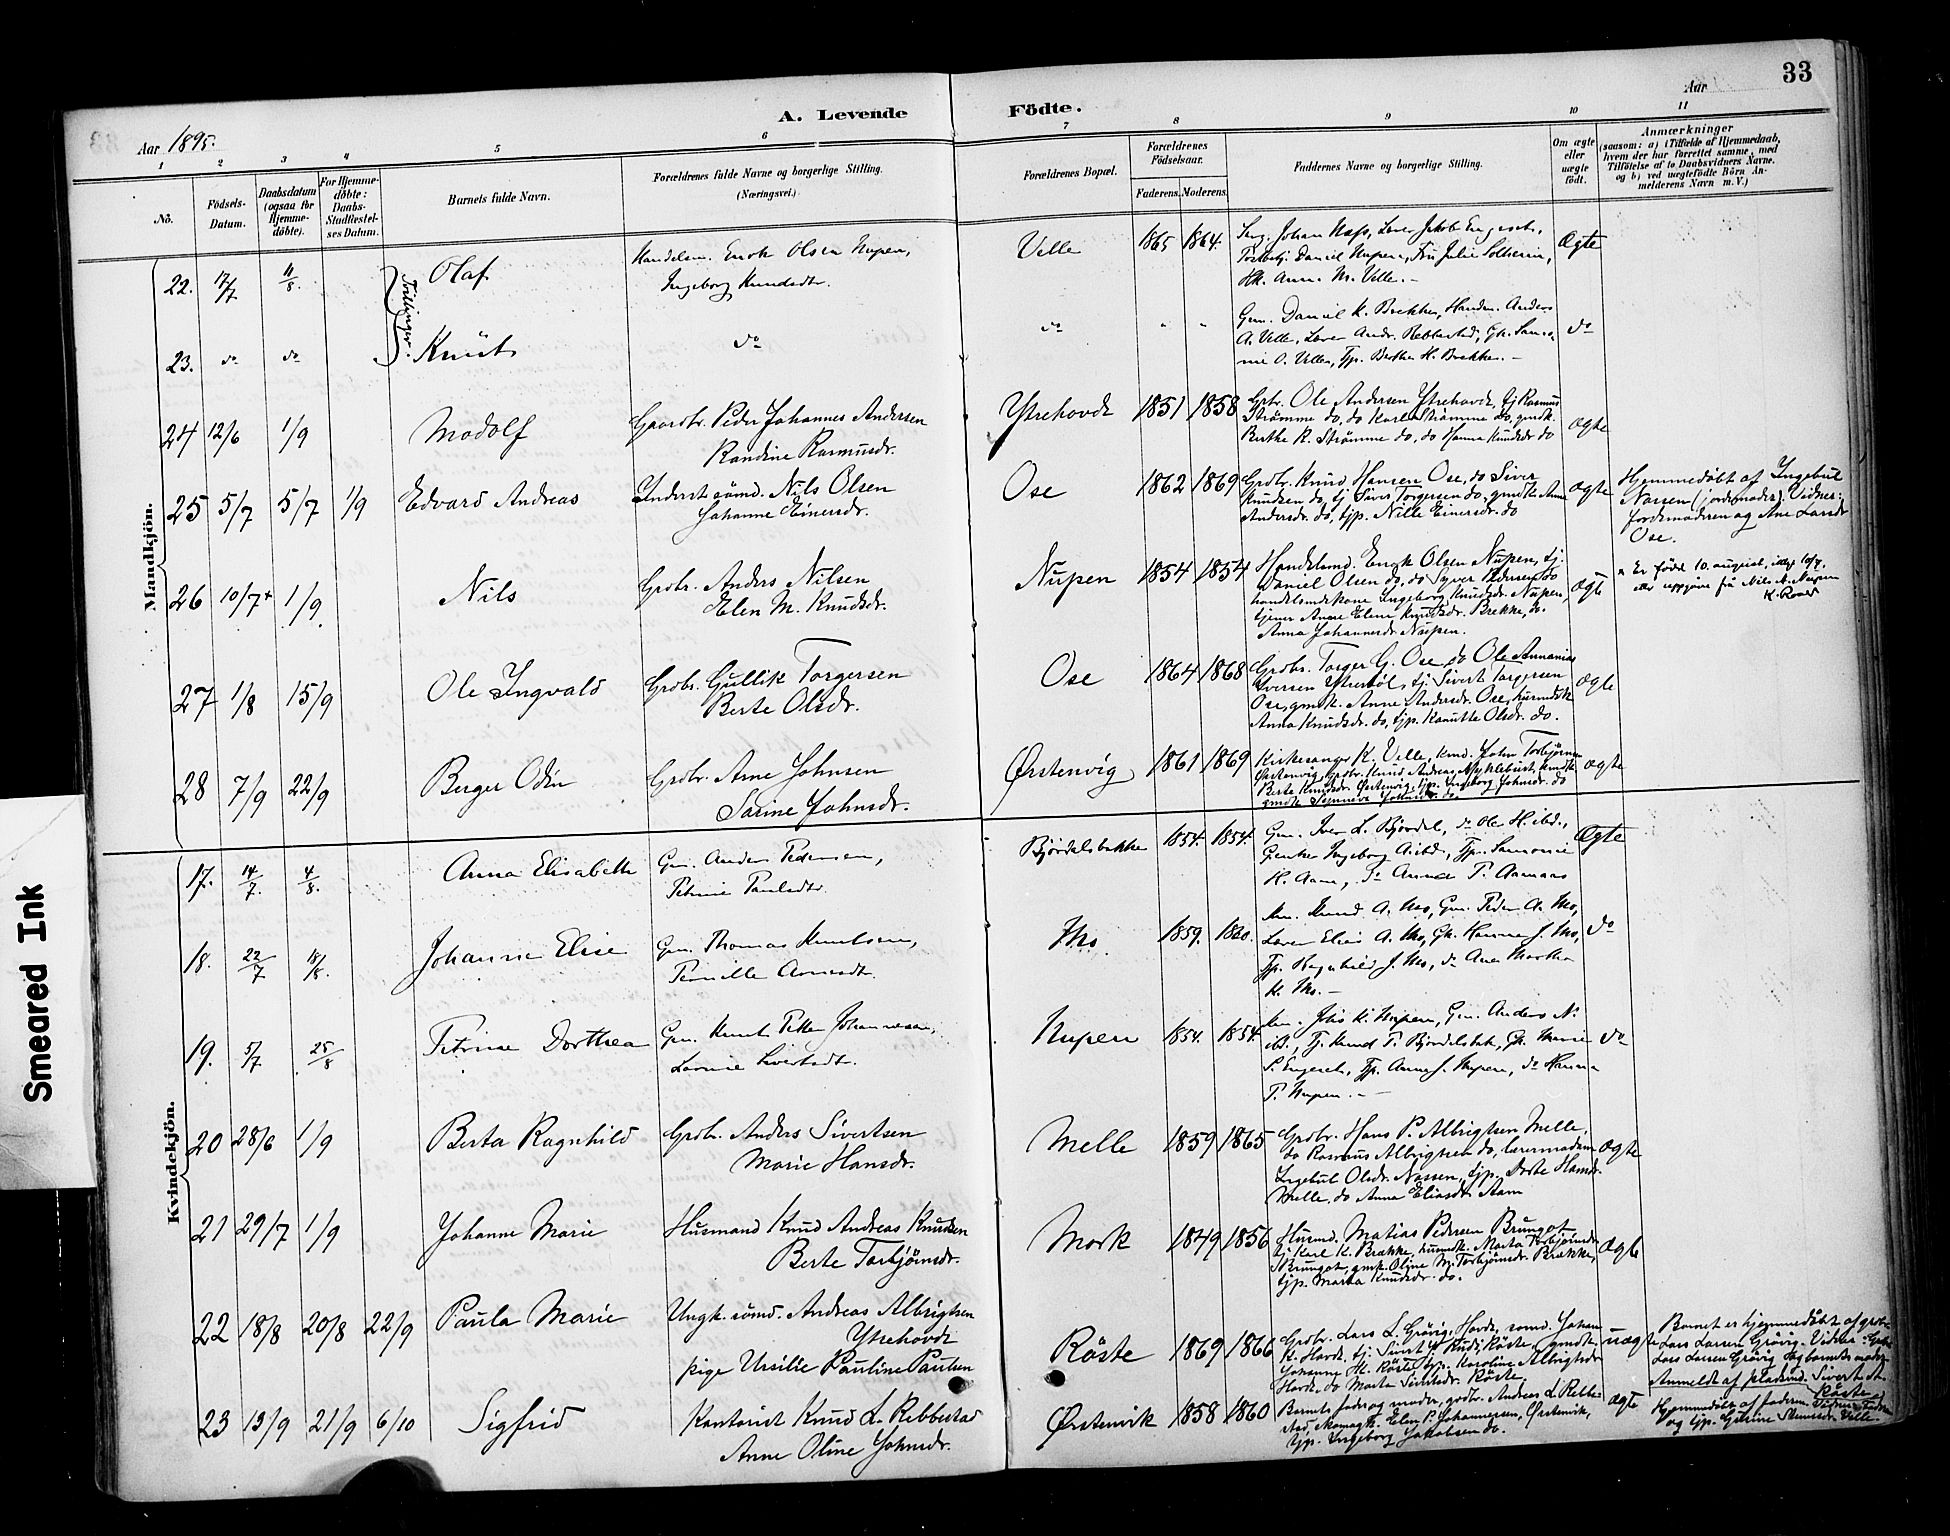 33
Aar
A. Levende Födte.
Aar 1895.
1 2 3 4 5 6 7 8 9 10 11
No.
Födsels-Datum.
Daabsdatum (ogsaa for Hjemme-döbte).
For Hjemme-döbte: Daabs-Stadfæstel-ses Datum.
Barnets fulde Navn.
Forældrenes fulde Navne og borgerlige Stilling.
(Næringsvei.)
Forældrenes Bopæl.
Forældrenes Födselsaar.
Faderens. Moderens.
Faddernes Navne og borgerlige Stilling.
Om ægte eller uægte födt.
Anmærkninger
(saasom: a) i Tilfælde af Hjemmedaab,
hvem der har forrettet samme, med
Tilföielse af to Daabsvidners Navne.
og b) ved uægtefödte Börn An-
melderens Navn m.V.)
Mandkjön.
Tvillinger.
22. 17/7 11/8. Olaf
Handelsm. Enok Olsen Nupen,
Ingeborg Knudsdtr.
Velle 1865 1864.
Daniel Nupen, Fru Julie Solheim,
Anna M. Velle. -
Ægte
23. do do Knut do
do " "
Gm. Daniel K. Brekke, Handm. Anders
A. Velle, Lærer Andr. Rebbestad,
O. Velle, Tjp. Berthe H. Brekke. -
do
24 12/6 1/9 Modolf
Gaardbr. Peder Johannes Andersen
Randine Rasmusdr.
Ytrehovde 1851 1858
Grbr. Ole Andersen Ytrehovde, tj Rasmus
Strömme do, do Karl Strömme do, gmdk.
Berthe R. Strömme do, do Hanna Knudsdr do
ægte
25 5/7 5/7 1/9 Edvard Andreas
Inderst sömd. Nils Olsen
Johanne Einersdr.
Ose 1862 1869
Grdbr. Knud Hansen Ose, do Siver
Knudsen do, tj Siver Torgersen do, gmdk Anne
Andersdr. do, tjp. Nille Einersdr. do
ægte
Hjemmedöbt af Ingebul
Nossen (jordemoder). Vidner:
Jordemoderen og Ane Larsdr
Ose.
26 10/7+ 1/9 Nils
Grdbr. Anders Nilsen
Elen M. Knudsdr.
Nupen 1854 1854
Handelsmd. Enok Olsen Nupen, tj.
Daniel Olsen do, do Syver Pedersen do
handelsmdskone Ingeborg Knudsdr. Nupen,
tjener Anne Elene Knudsdr. Brekke, do.
Anna Johannesdr Nupen.
ægte
x Er født 10. august, ikkje 10/7,
etter uppgjeve frå Nils A. Nupen
27 1/8 15/9 Ole Ingvald
Grdbr. Gullik Torgersen
Berte Olsdr.
Ose 1864 1868
Grdbr. Torger G. Ose, do Ole Annanias
Iversen Ytrestöl, tj. Sivert Torgersen
Ose, gmdk. Anne Andersdr. Ose, husmdsk
Anna Knudsdr. do, tjp. Knutte Olsdr. do.
ægte
28 7/9 22/9 Berger Odin
Grdbr. Arne Johnsen
Sarine Johnsdr.
Ørstenvig 1861 1869
Kirkesanger K. Velle, kmd. John Torbjörnsen
Ørstenvig, Grdbr. Knud Andreas Myklebust, kmdk
Berte Knudsdr. Ørstenvig, tjp. Ingeborg Johnsdr. do
gmdk Synneve Johnsdr. do.
ægte
Kvindekjön.
17. 14/7. 4/8. Anna Elisabeth
Gm. Anders Pedersen,
Petrine Paulsdtr.
Björdalsbakke 1854. 1854.
Gm. Iver L. Björdal, do Ole H. ibd.,
Ingeborg A. ibd.,
H. Aam, do Anne P. Aamaas
Ægte
18. 22/7 18/8. Johanne Elise
Gm. Thomas Knutsen,
Pernille Arnesdt.
Mo. 1859. 1860.
Knud A. Mo, Gm. Peder A. Mo,
Lærer Elias A. Mo, Gk. Hanna J. Mo,
Tjp. Ragnhild J. Mo, do Ane Martha
K. Mo. -
do
19. 5/7 25/8 Petrine Dorthea
Gm. Knut Petter Johannesen,
Sivertsdt.
Nupen 1854. 1854.
K. Nupen, Gm. Anders N.
ibd., Tj. Knud P. Björdalsbak, Gk. Marie
S. Engeset, Tjp. Anne J. Nupen, do Hanna
P. Nupen. -
do
20 28/6 1/9 Berta Ragnhild
Grdbr. Anders Sivertsen
Marie Hansdr.
Melle 1859 1865
Grdbr. Hans P. Albrigtsen Melle,
do Rasmus Albrigtsen do, Jordmoderen
Ingebul Olsdr. Nossen, tjp. Dorte Hansdr.
Melle, do Anna Eliasdr Aam
ægte
21 29/7 1/9 Johanne Marie
Husmand Knud Andreas Knudsen
Berte Torbjörnsdr.
Mork 1849 1856
Husmd. Matias Pedersen Brungot
tj Karl K. Brække, husmdk. Marta Torbjörnsdr
Brungot, gmk. Oline M. Torbjörnsdr. Brække,
tjp. Marta Knudsdr. do.
ægte
22 18/8 20/8 22/9 Paula Marie
Ungk. sömd. Andreas Albrigtsen
Ytrehovde
pige Ursilie Pauline Paulsen
Röste 1869 1866
Grdbr. Lars L. Grövig, Hovde, sömd. Johan
K. Hovde, tj. Sivert Röste, gmdk.
Johanne H. Röste, tjp. Karoline Albrigtsdr
Hovde, do Marta Sivertsdr. Röste.
uægte
Barnet er hjemmedöbt af grdbr.
Lars Larsen Grövig. Vidner: Grdbr
Lars Larsen Grövig og barnets moder
Anmeldt af pladsmd. Sivert A.
Röste
23 13/9 21/9 6/10 Sigfrid
Kantorist Knud L. Rebbestad
Anne Oline Johnsdr.
Ørstenvik 1858 1860
Barnets fader og moder, grdbr. Andreas L Rebbe-
stad, Skomagk. Elen P. Johannesen, Ørstenvik,
tjp. Ingeborg Jakobsen do.
ægte
Hjemmedöbt af faderen. Vidner: Faderen
og tjp. Gurine Velle.
Smeared Ink